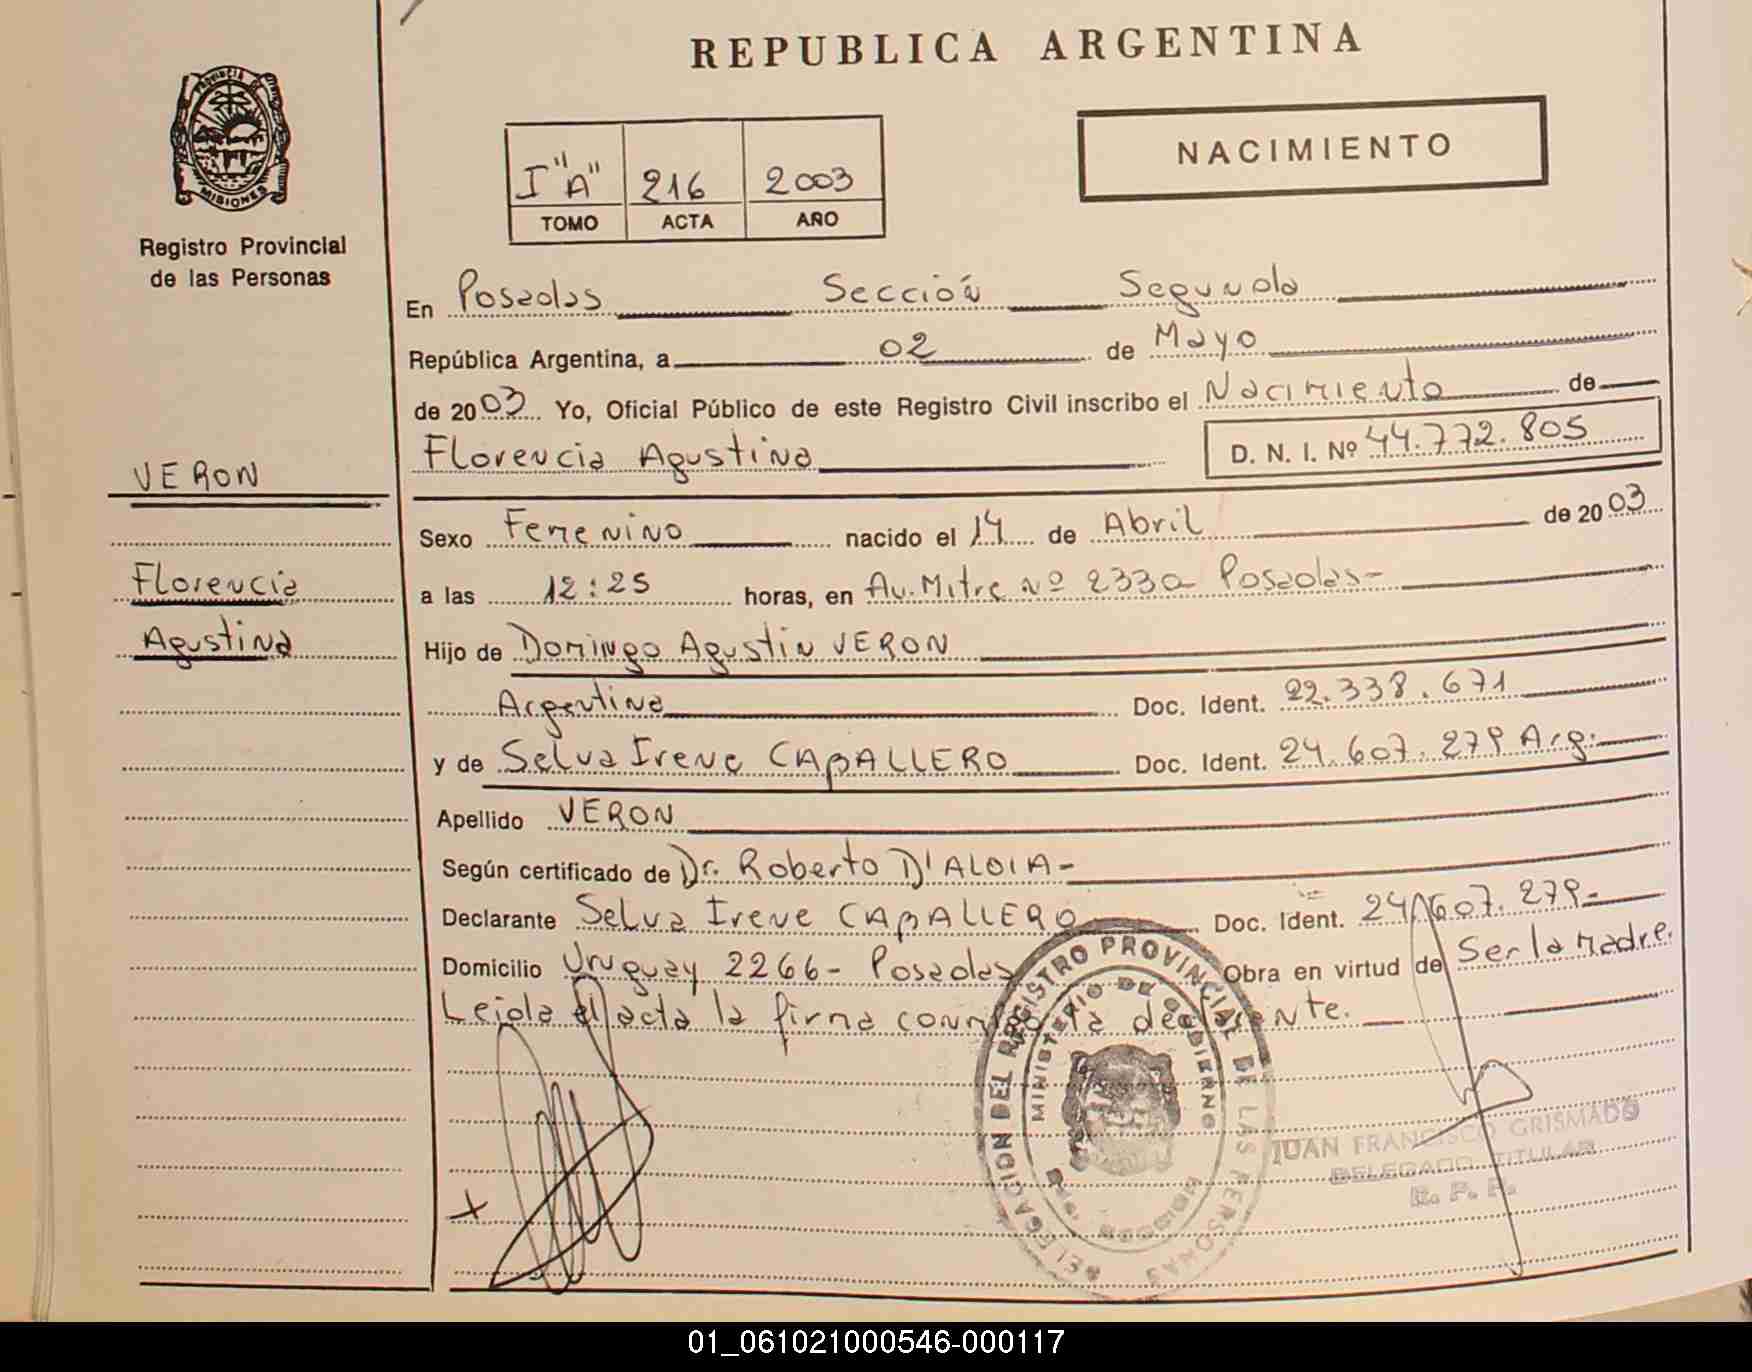 REPUBLICA ARGENTINA
PROVINCIA DE
MISIONES
Registro Provincial
de las Personas
I "A" 216 2003
TOMO ACTA AÑO
NACIMIENTO
En Posadas Sección Segunda
República Argentina, a 02 de Mayo
de 2003 Yo, Oficial Público de este Registro Civil inscribo el Nacimiento de
Florencia Agustina D. N. I. Nº 44.772.805
VERON
Florencia
Agustina
Sexo Femenino nacido el 14 de Abril de 2003
a las 12:25 horas, en Av. Mitre nº 2330 Posadas-
Hijo de Domingo Agustin VERON
Argentina Doc. Ident. 22.338.671
y de Selva Irene CABALLERO Doc. Ident. 24.607.279 Arg.
Apellido VERON
Según certificado de Dr. Roberto D'ALOIA-
Declarante Selva Irene CABALLERO Doc. Ident. 24.607.279-
Domicilio Uruguay 2266- Posadas Obra en virtud de Ser la madre.
Leida el acta la firma conmigo la declarante.
DELEGACION DEL REGISTRO PROVINCIAL DE LAS PERSONAS
MINISTERIO DE GOBIERNO
JUAN FRANCISCO GRISMADO
DELEGADO TITULAR
R. P. P.
01_061021000546-000117